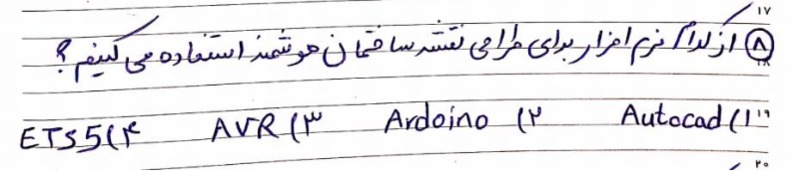 ۱۷
۸ از کدام نرم افزار برای طراحی نقشه ساختمان هوشمند استفاده می کنیم؟
۱۸
۱) Autocad ۲) Ardoino ۳) AVR ۴) ETS5
۱۹
۲۰